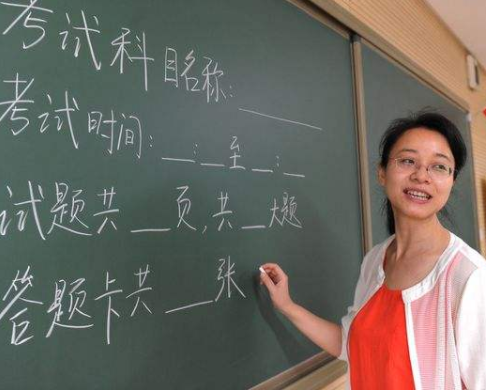 考试科目名称:______
考试时间:__:__至__:__
试题共__页,共__大题
答题卡共__张